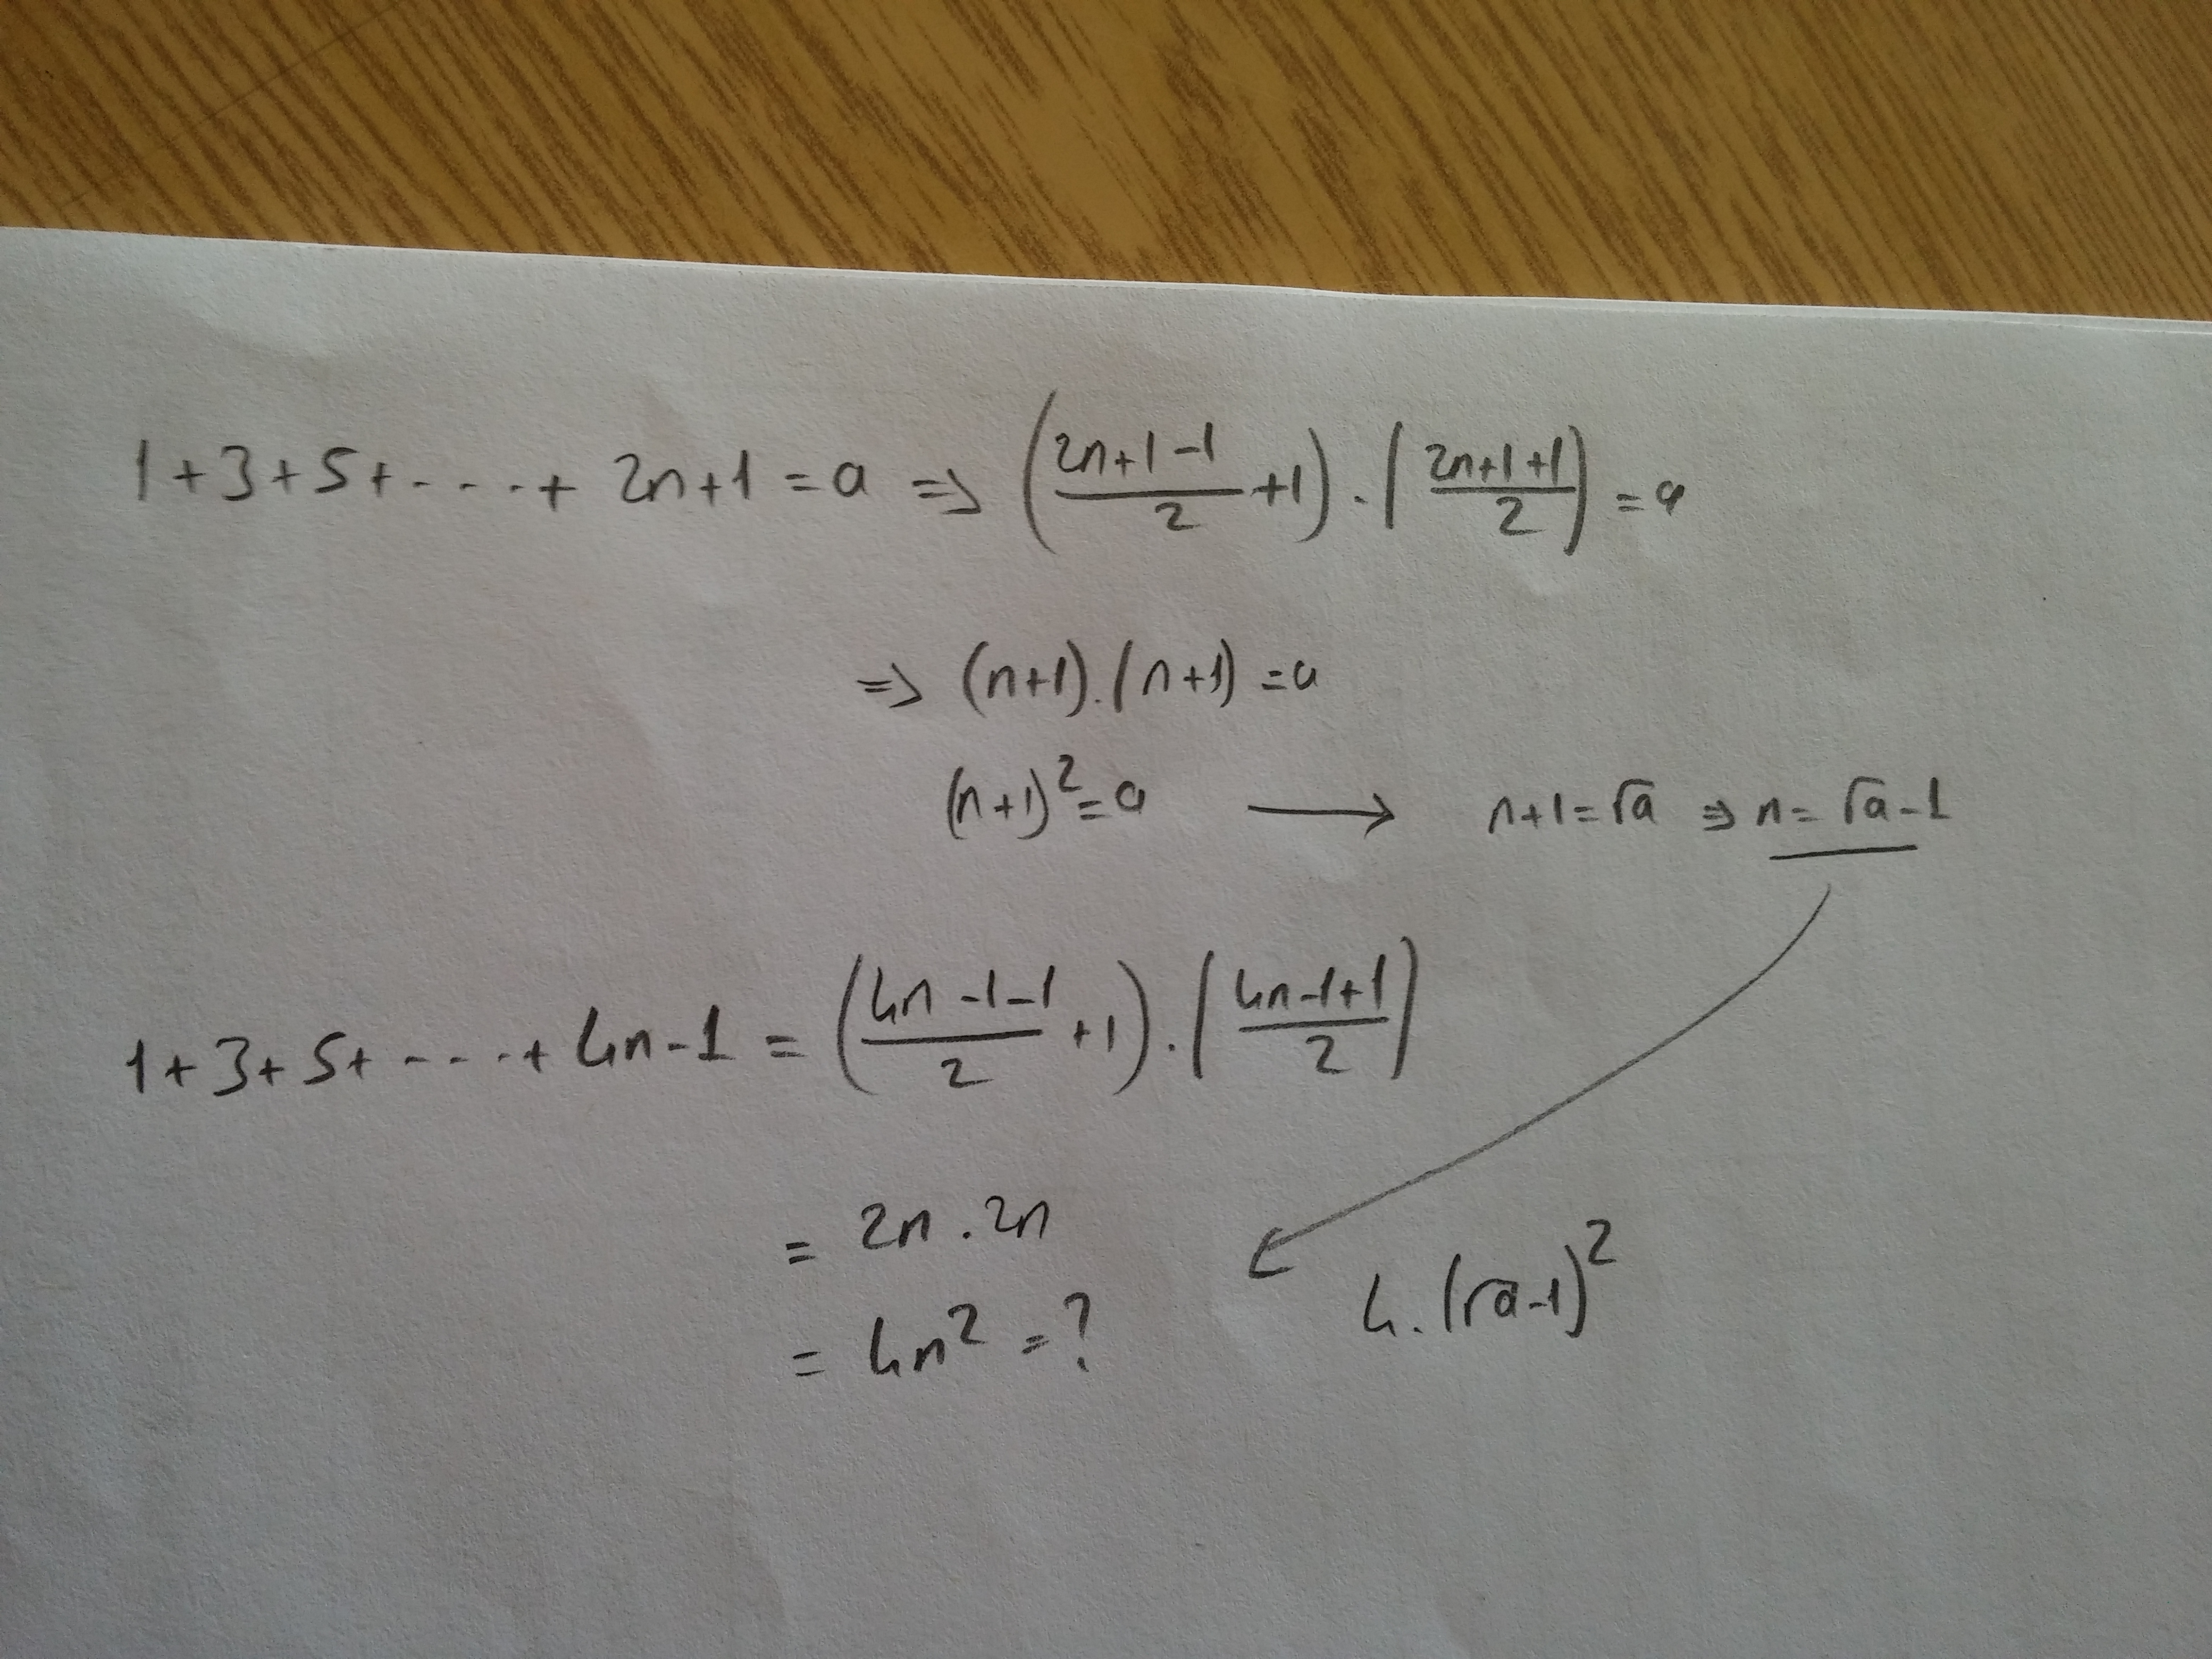 1+3+5+----+ 2n+1 = a ⇒ ((2n+1-1)/2 +1) . ((2n+1+1)/2) = a
⇒ (n+1).(n+1) = a
(n+1)² = a ⟶ n+1 = √a ⇒ n = √a - 1
1+3+5+----+ 4n-1 = ((4n-1-1)/2 +1) . ((4n-1+1)/2)
= 2n . 2n
4.(√a-1)²
= 4n² = ?